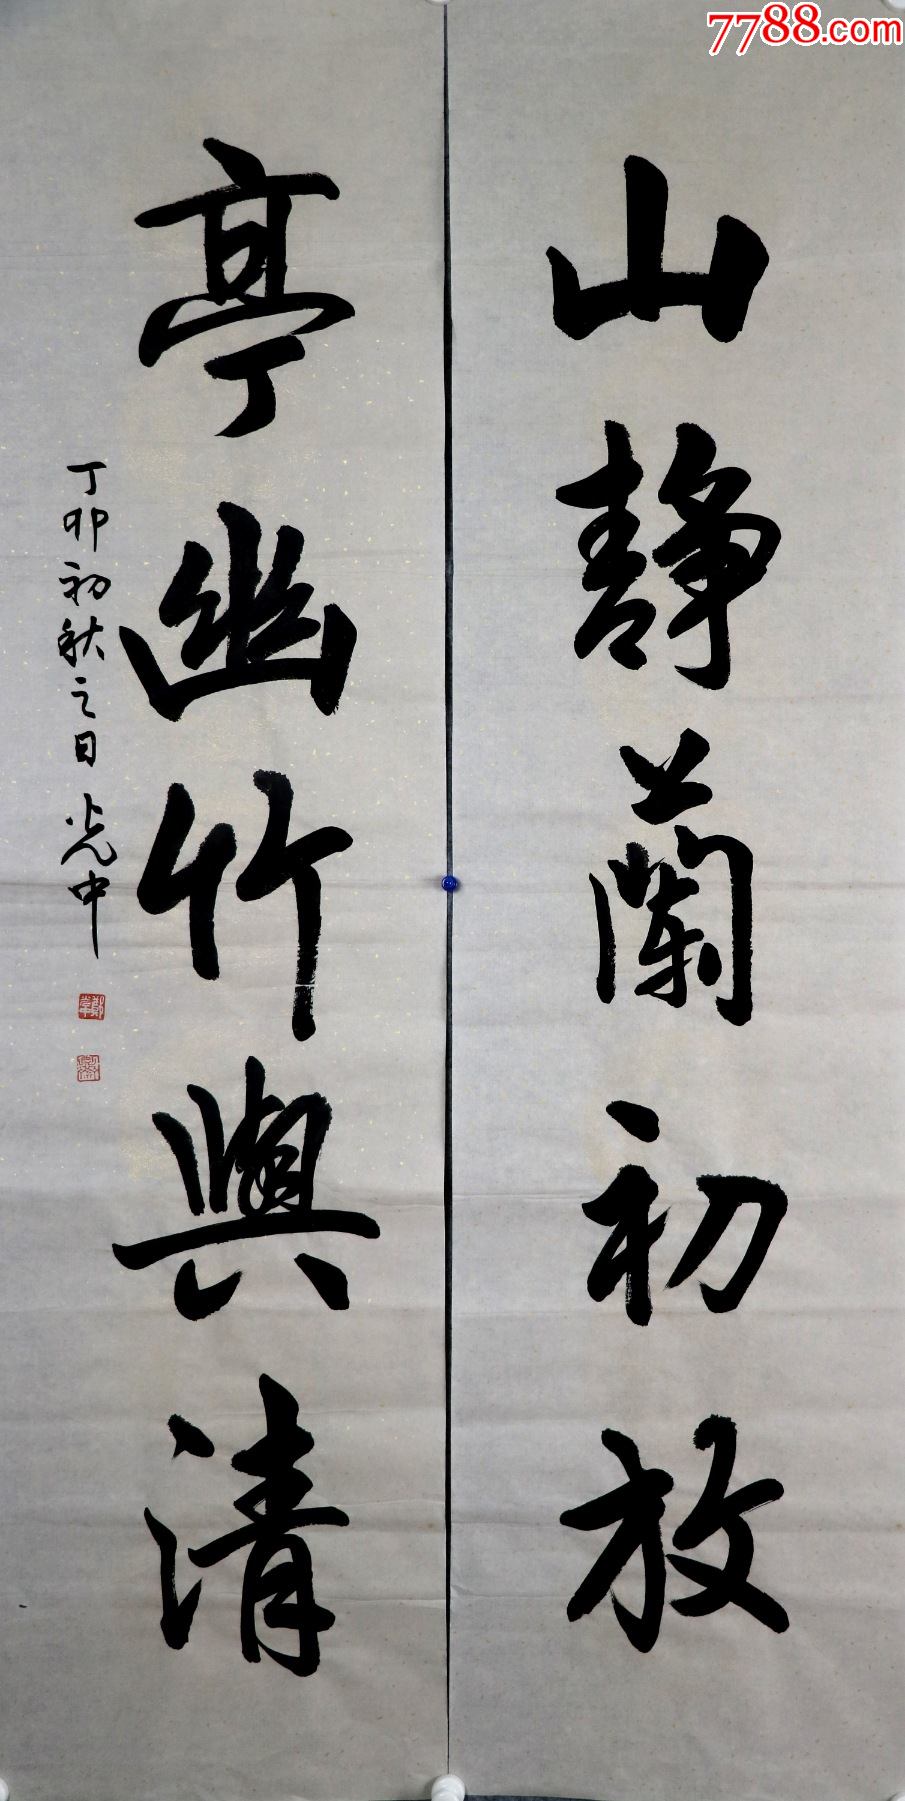 7788.com
山静蘭初放
亭幽竹興清
丁卯初秋之日光中